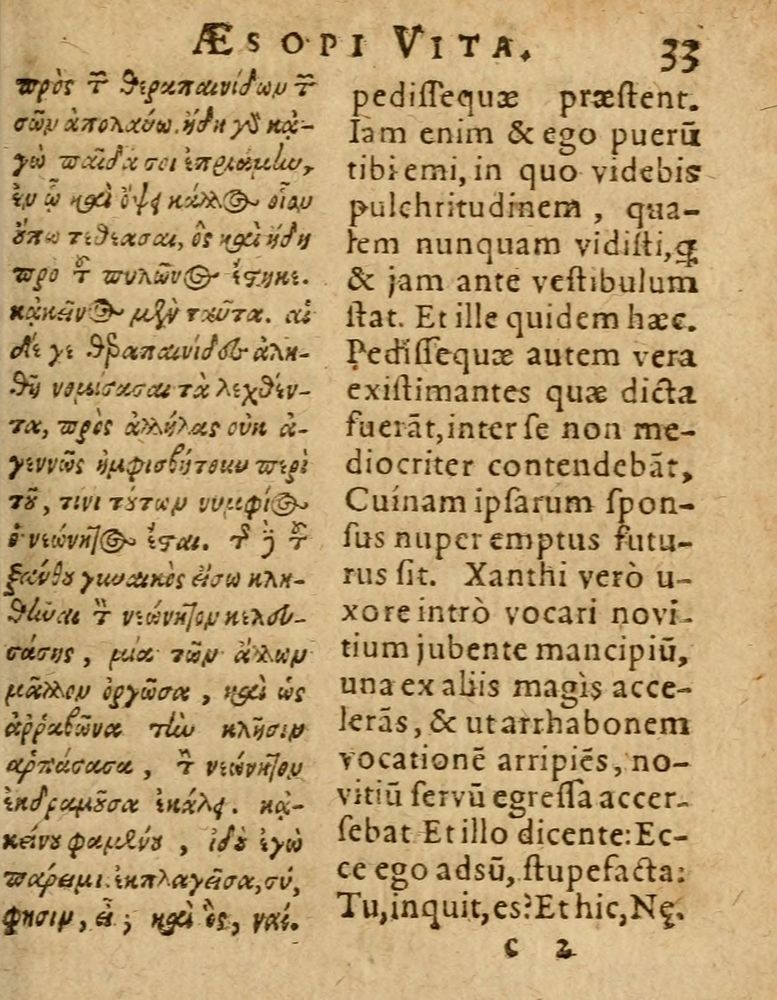 ÆSOPI VITA. 33
πρὸς τ̃ θεραπαινίδων τ̃
σῶν ἀπολαύω. ἤδη γδ κἀ-
γὼ παῖδα σοι ἐπριάμην,
ἐν ᾧ καὶ ὄψῃ κάλλος οἷον
οὔπω τεθέασαι, ὃς καὶ ἤδη
πρὸ τ̃ πυλῶνος ἕστηκε.
κἀκεῖνος μὲν ταῦτα. αἱ
δέ γε θεραπαινίδες ἀλη-
θῆ νομίσασαι τὰ λεχθέν-
τα, πρὸς ἀλλήλας οὐκ ἀ-
γεννῶς ἠμφισβήτουν περὶ
τοῦ, τίνι τούτων νυμφίος
ὁ νεώνητος ἔσται. τ̃ δὲ τ̃
ξάνθου γυναικὸς εἴσω κλη-
θῆναι τ̃ νεώνητον κελευ-
σάσης, μία τῶν ἄλλων
μᾶλλον ὀργῶσα, καὶ ὡς
ἀῤῥαβῶνα τὴν κλῆσιν
ἁρπάσασα, τ̃ νεώνητον
ἐκδραμοῦσα ἐκάλει. κἀ-
κείνου φαμένου, ἰδοὺ ἐγὼ
πάρειμι. ἐκπλαγεῖσα, σύ,
φησιν, εἶ; καὶ ὃς, ναί.
pediſſequæ præſtent.
Iam enim & ego puerū
tibi emi, in quo videbis
pulchritudinem, qua-
lem nunquam vidiſti, q̨
& jam ante veſtibulum
ſtat. Et ille quidem hæc.
Pediſſequæ autem vera
exiſtimantes quæ dicta
fuerāt, inter ſe non me-
diocriter contendebāt,
Cuínam ipſarum ſpon-
ſus nuper emptus futu-
rus ſit. Xanthi verò u-
xore intrò vocari novi-
tium jubente mancipiū,
una ex aliis magìs acce-
lerās, & ut arrhabonem
vocationē arripiēs, no-
vitiū ſervū egreſſa accer-
ſebat Et illo dicente: Ec-
ce ego adsū, ſtupefacta:
Tu, inquit, es? Et hic, Nę.
C 2